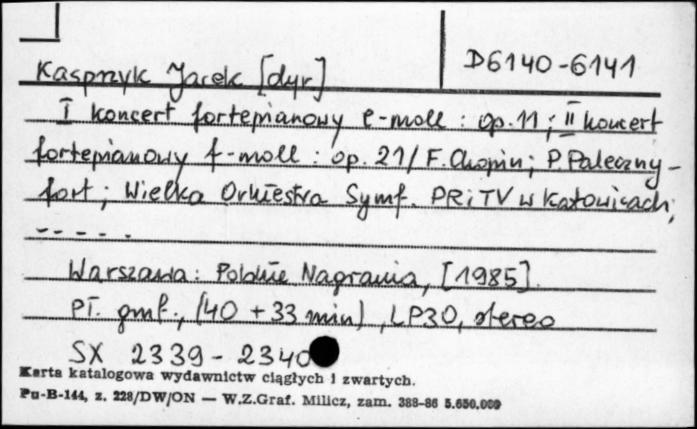 D6140-6141
Kasprzyk Jacek [dyr]
I koncert fortepianowy e-moll : op. 11 ; II koncert
fortepianowy f-moll : op. 21 / F. Chopin ; P. Paleczny -
fort ; Wielka Orkiestra Symf. PRiTV w Katowicach ;
- - - - .
Warszawa : Polskie Nagrania, [1985].
Pł. gmf., (40 + 33 min) , LP30, stereo
SX 2339 - 2340
Karta katalogowa wydawnictw ciągłych i zwartych.
Pu-B-144, z. 228/DW/ON — W.Z.Graf. Milicz, zam. 388-86 5.650.000